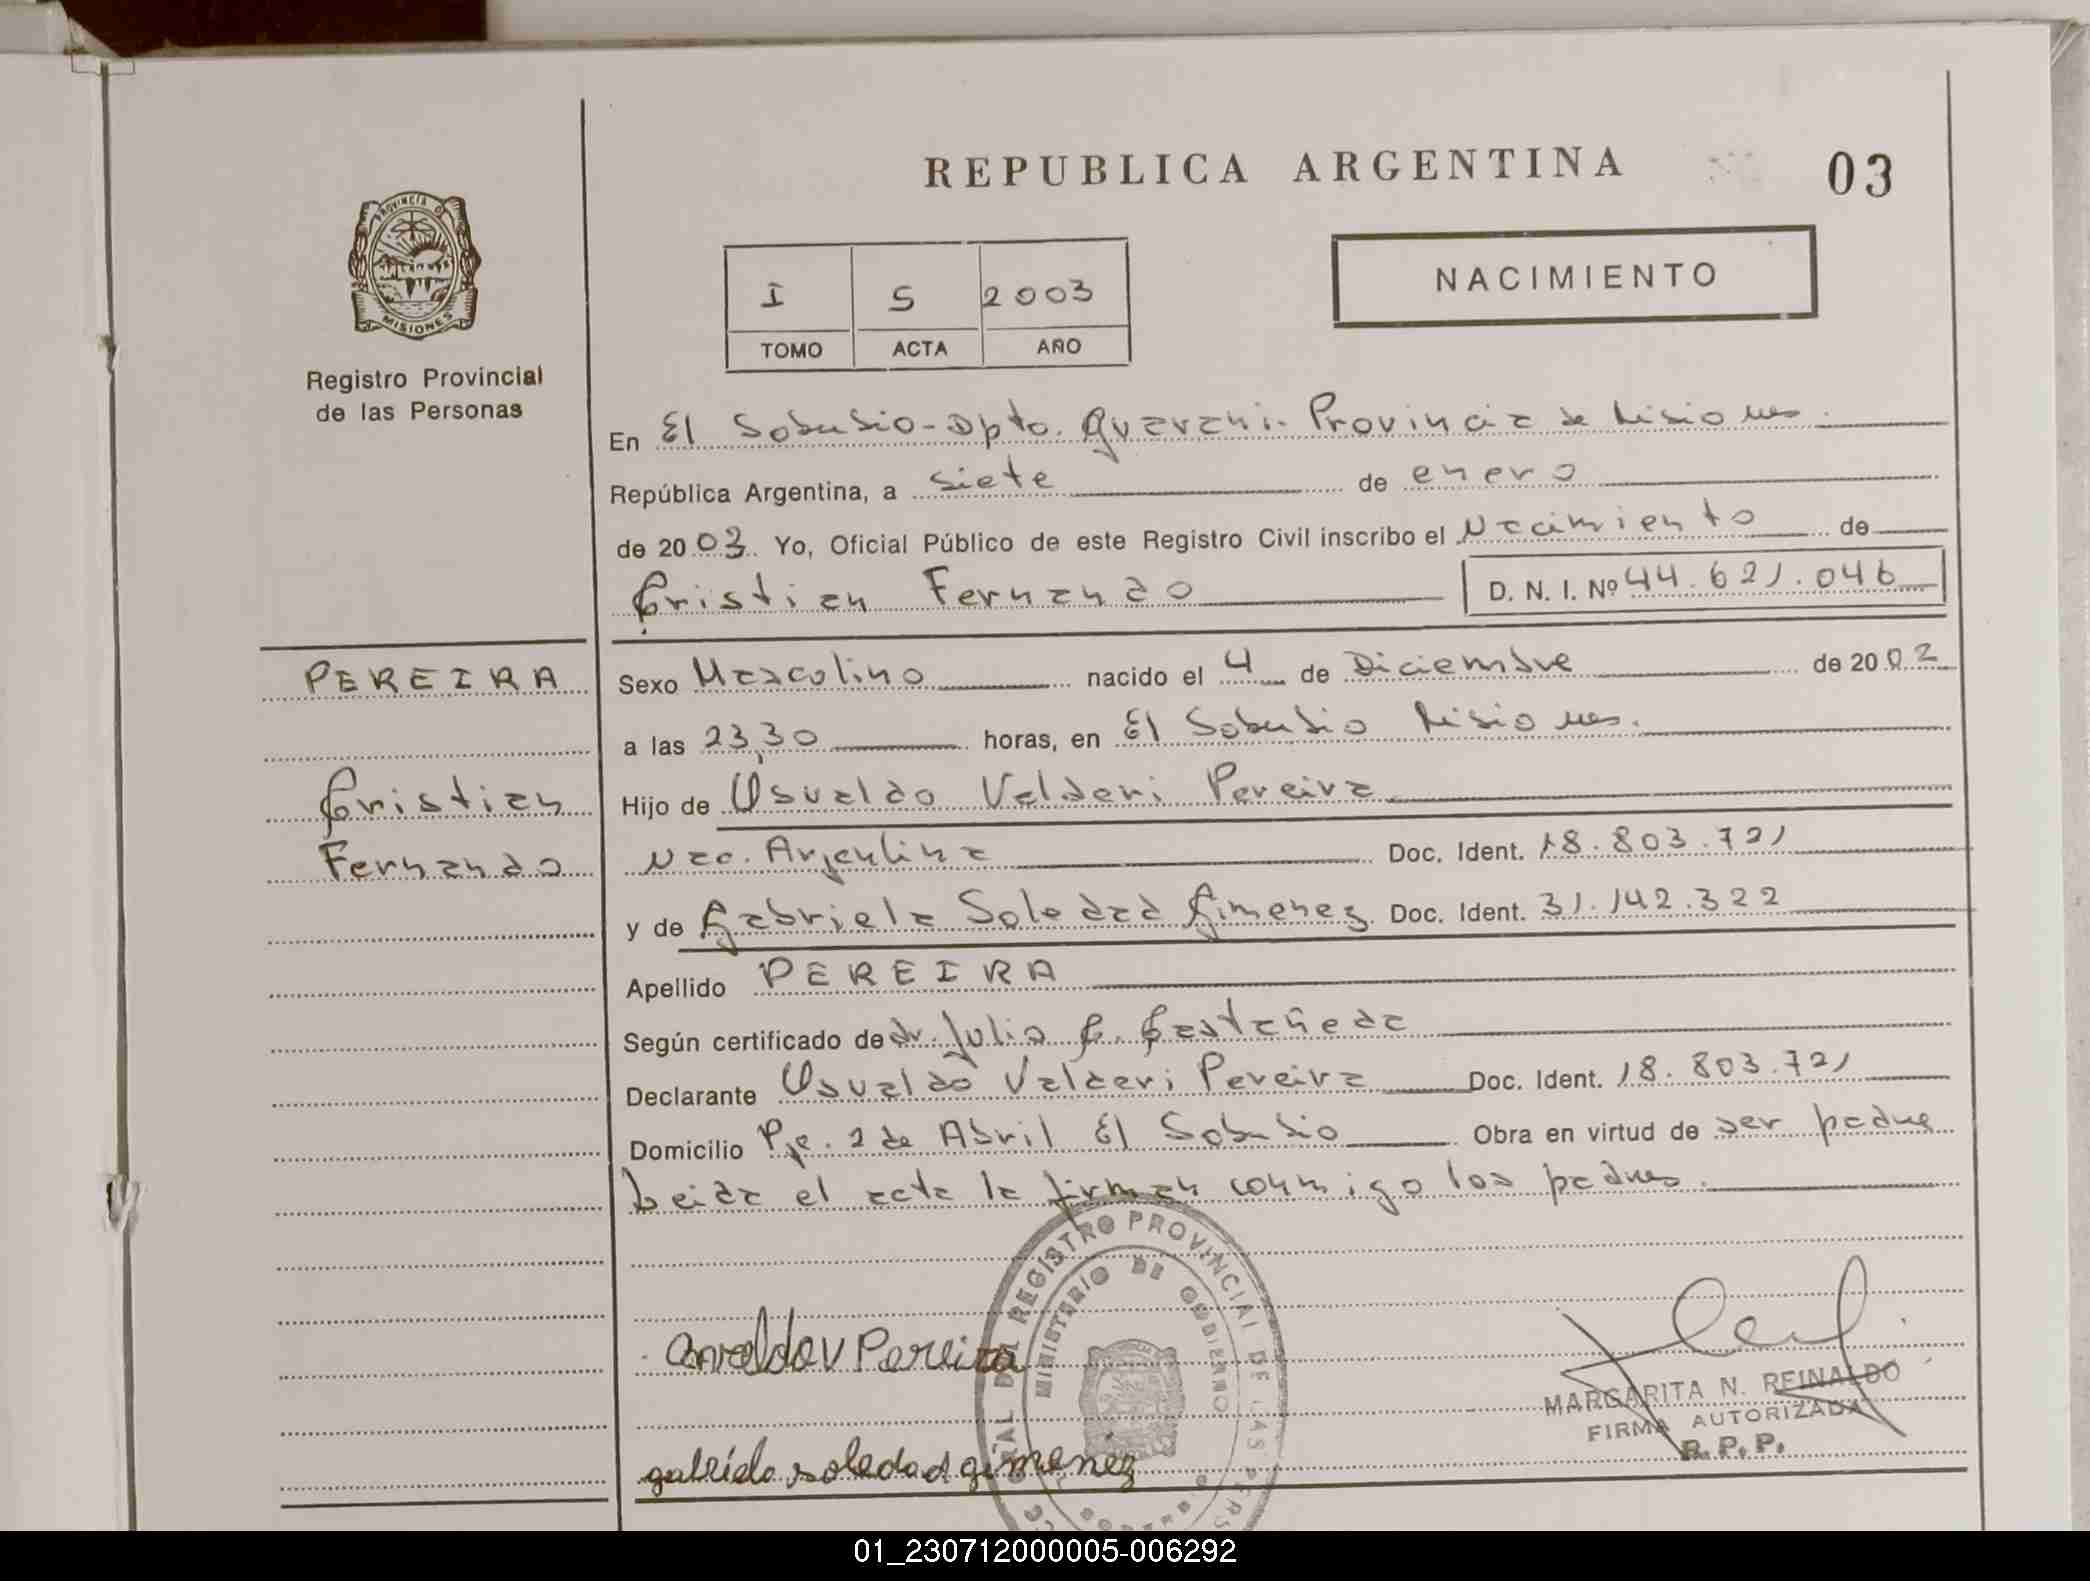 REPUBLICA ARGENTINA
03
PROVINCIA DE
MISIONES
Registro Provincial
de las Personas
I 5 2003
TOMO ACTA AÑO
NACIMIENTO
En El Soberbio - Dpto. Guarani - Provincia de Misiones.
República Argentina, a siete de enero
de 2003. Yo, Oficial Público de este Registro Civil inscribo el Nacimiento de
Cristian Fernando D. N. I. Nº 44.621.046
PEREIRA
Cristian
Fernando
Sexo Masculino nacido el 4 de Diciembre de 2002
a las 23,30 horas, en El Soberbio Misiones.
Hijo de Osvaldo Valderi Pereira
Nac. Argentina Doc. Ident. 18.803.721
y de Gabriela Soledad Gimenez Doc. Ident. 31.142.322
Apellido PEREIRA
Según certificado de dr. Julio C. Castañeda
Declarante Osvaldo Valderi Pereira Doc. Ident. 18.803.721
Domicilio Pje. 2 de Abril El Soberbio Obra en virtud de ser padre
Leida el acta la firman conmigo los padres.
REGISTRO PROVINCIAL DE LAS PERS
MINISTERIO DE GOBIERNO
Osvaldo V Pereira
MARGARITA N. REINALDO
FIRMA AUTORIZADA
R. P. P.
gabriela soledad gimenez
01_230712000005-006292